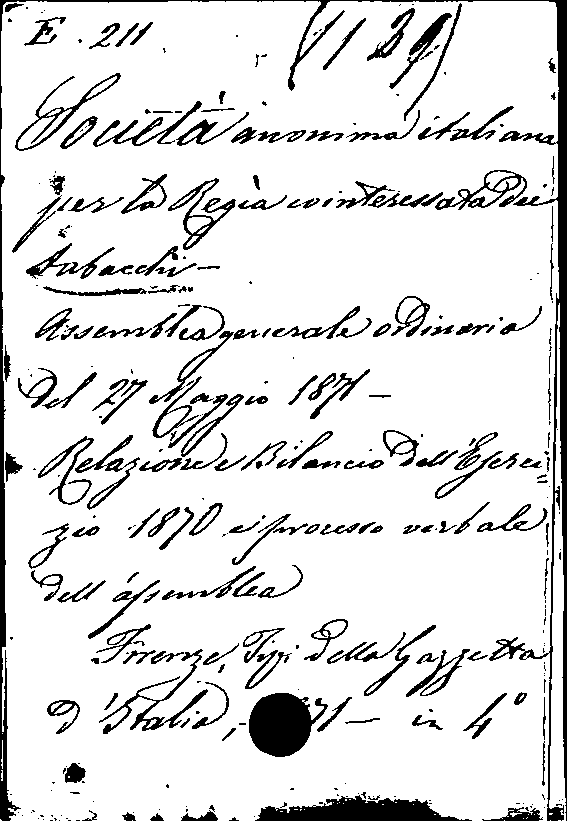 E. 211 (139)
Società anonima italiana
per la Regìa cointeressata dei
tabacchi —
Assemblea generale ordinaria
del 27 Maggio 1871 —
Relazione e Bilancio dell'Eserci=
zio 1870 e processo verbale
dell'assemblea
Firenze, Tipi della Gazzetta
d'Italia, 71 — in 4°